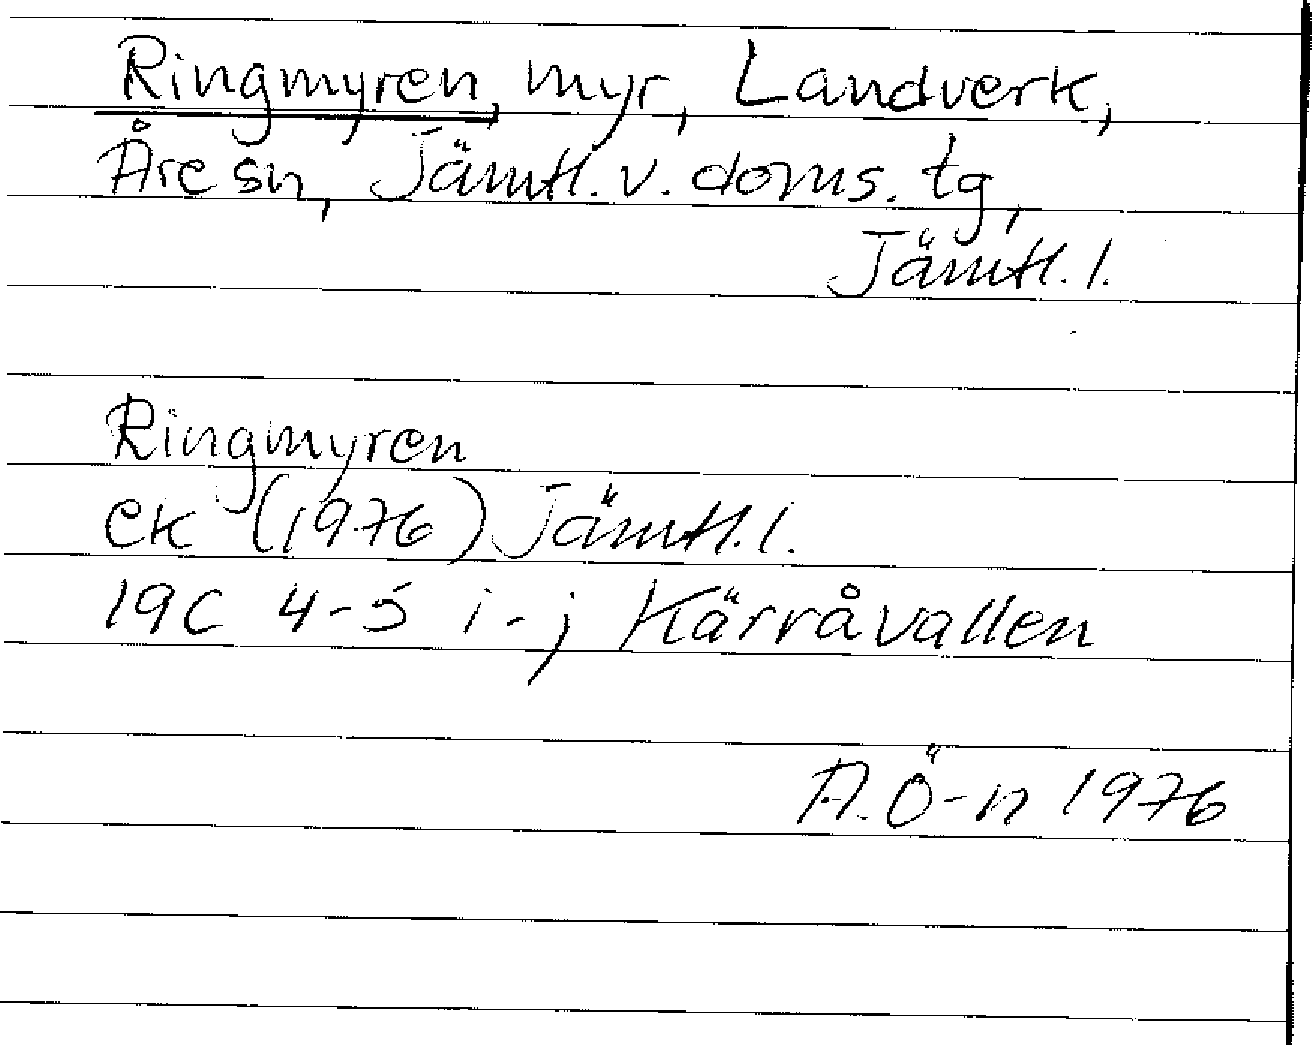 Ringmyren, myr, Landverk,
Åre sn, Jämtl. v. doms. tg,
Jämtl. l.
Ringmyren
ek (1976) Jämtl. l.
19C 4-5 i-j Kärråvallen
A. Ö-n 1976